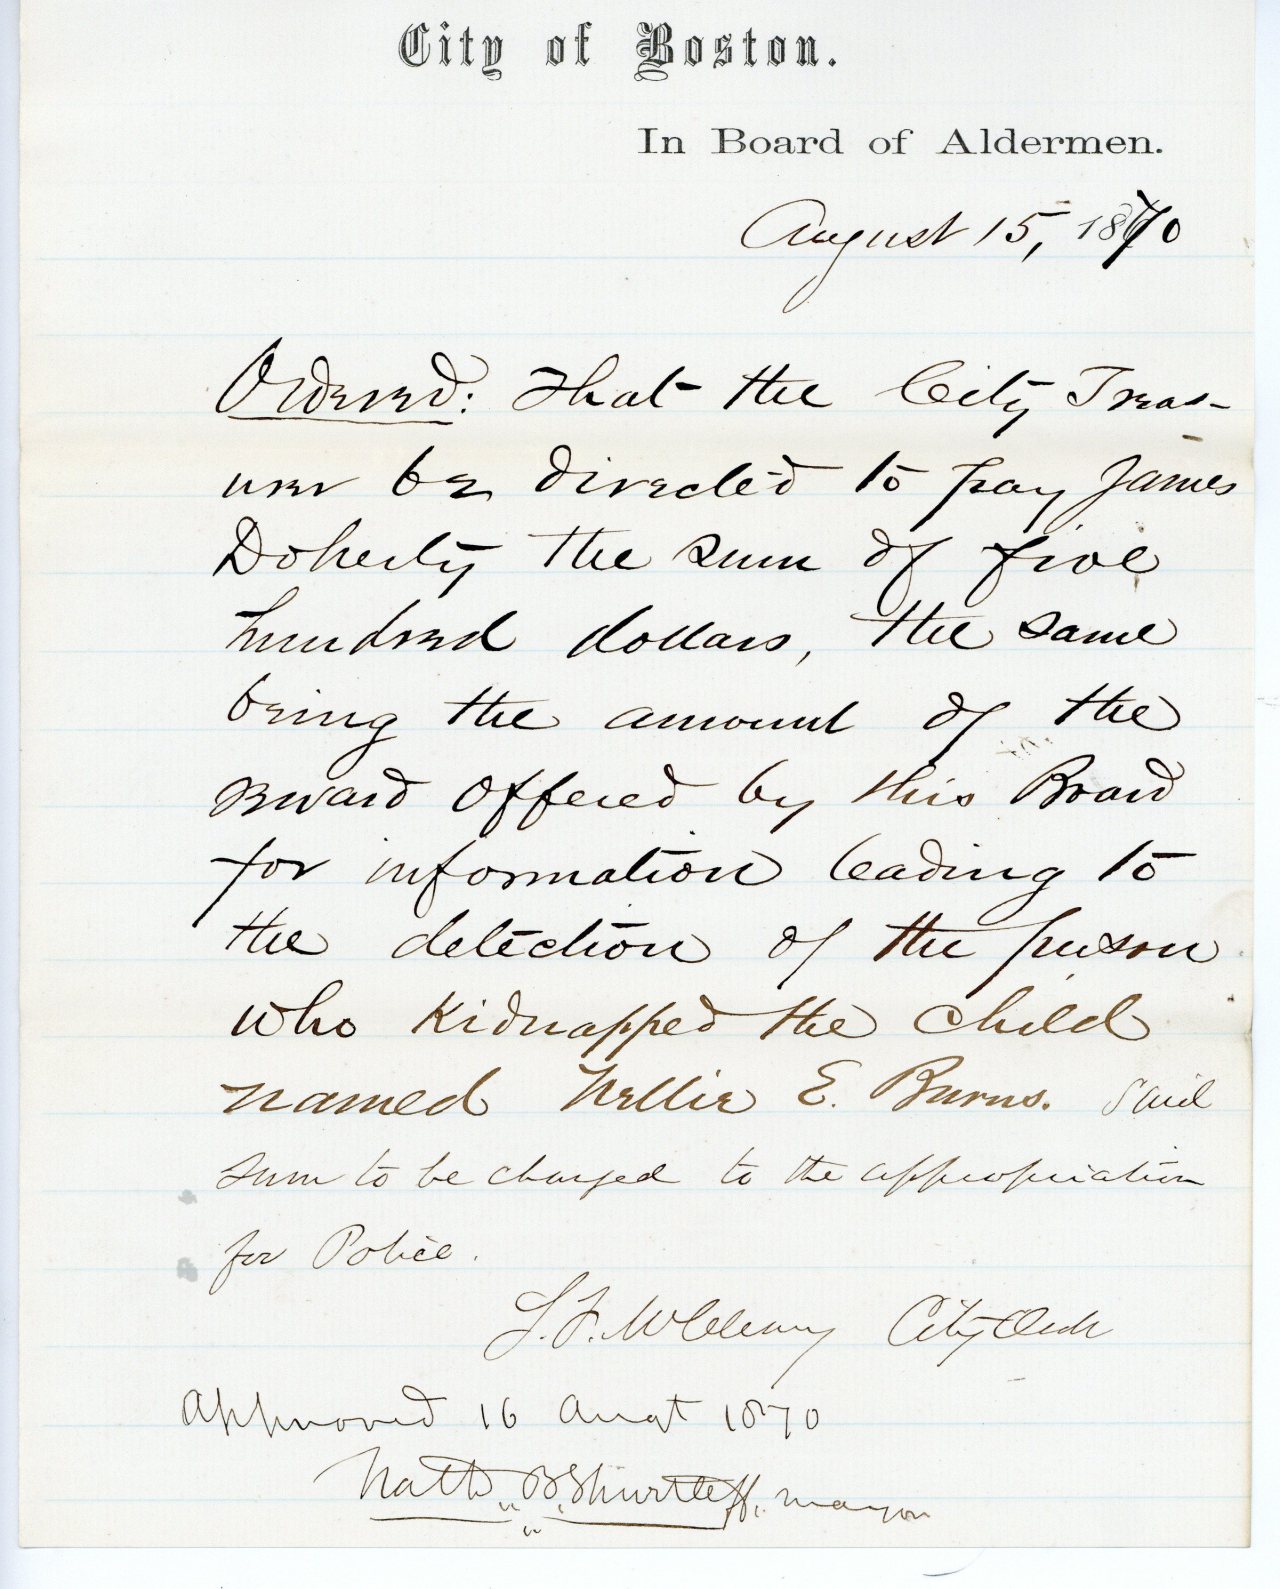 City of Boston.
In Board of Aldermen.
August 15, 1870
Ordered: That the City Treas-
urer be directed to pay James
Doherty the sum of five
hundred dollars, the same
being the amount of the
reward offered by this Board
for information leading to
the detection of the person
who kidnapped the child
named Nellie E. Burns. Said
sum to be charged to the appropriation
for Police.
S. F. McCleary City Clerk
Approved 16 Augt 1870
Nathl. B. Shurtleff, mayor